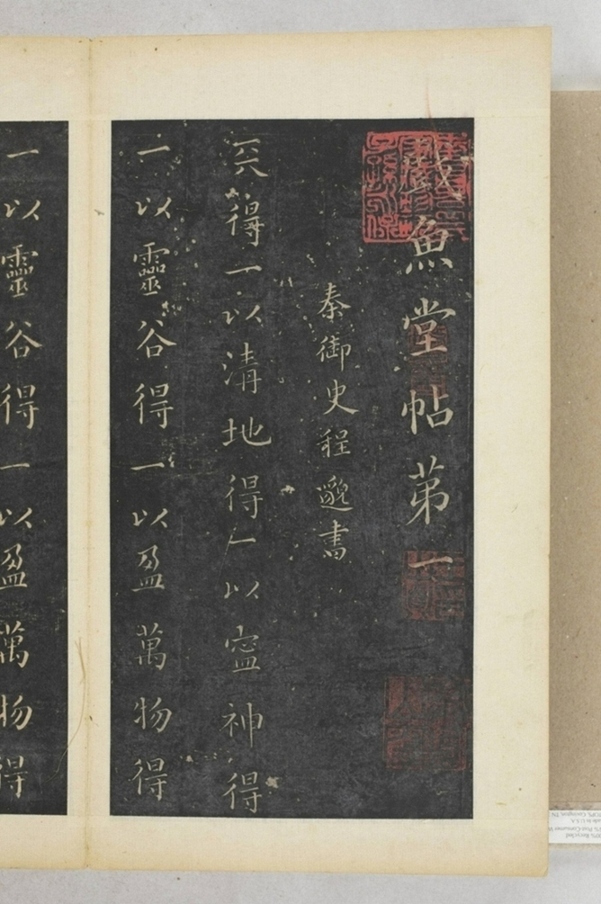 戲魚堂帖苐一
秦御史程邈書
天得一以清地得一以寍神得
一以靈谷得一以盈萬物得
一以靈谷得一以盈萬物得